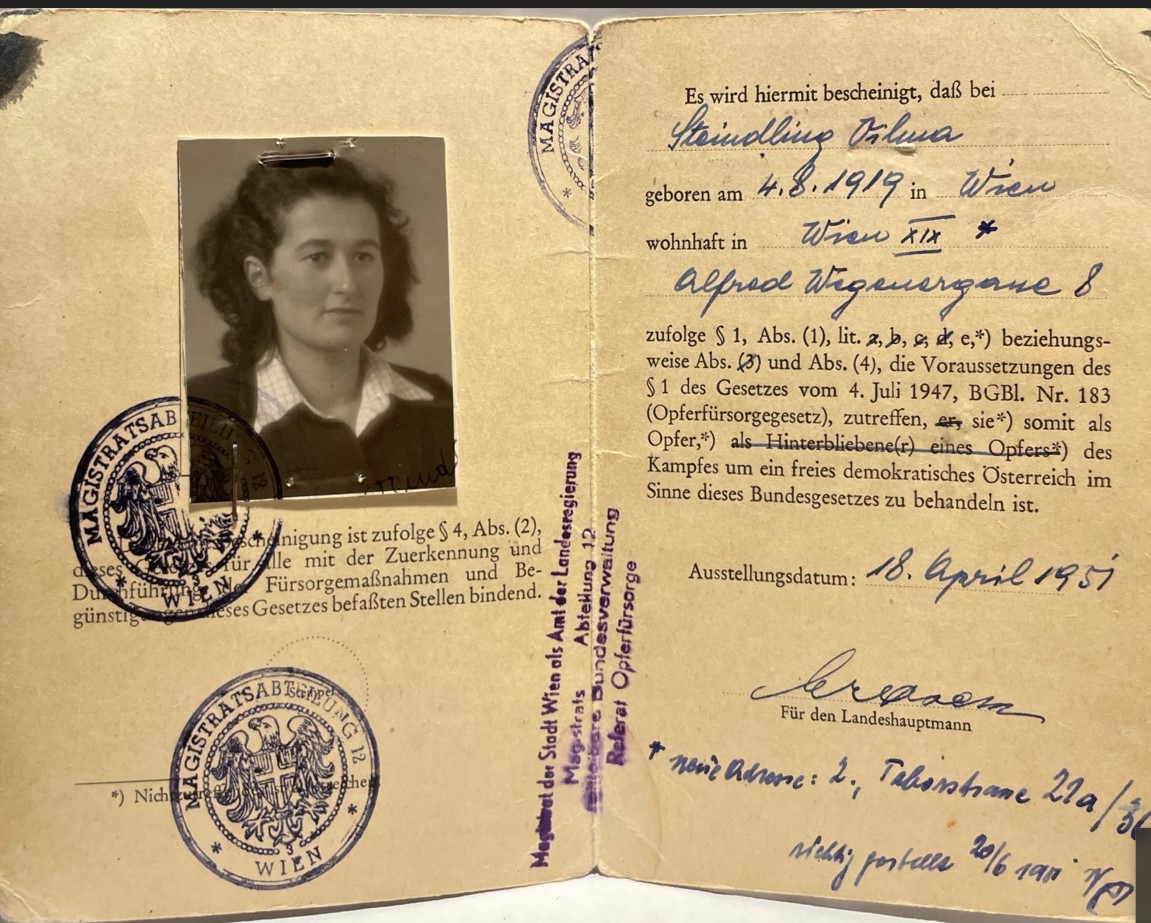 MAGISTRATSABTEILUNG 12
WIEN
scheinigung ist zufolge § 4, Abs. (2),
dieses für alle mit der Zuerkennung und
Durchführung Fürsorgemaßnahmen und Be-
günstigungen dieses Gesetzes befaßten Stellen bindend.
Stempel
MAGISTRATSABTEILUNG 12
WIEN
*) Nichtzutreffendes streichen
MAGISTRA
Magistrat der Stadt Wien als Amt der Landesregierung
Magistrats Abteilung 12
Bundesverwaltung
Referat Opferfürsorge
Es wird hiermit bescheinigt, daß bei
Steindling Vilma
geboren am 4.8.1919 in Wien
wohnhaft in Wien XIX *
Alfred Wegenergasse 8
zufolge § 1, Abs. (1), lit. a, b, c, d, e,*) beziehungs-
weise Abs. (3) und Abs. (4), die Voraussetzungen des
§ 1 des Gesetzes vom 4. Juli 1947, BGBl. Nr. 183
(Opferfürsorgegesetz), zutreffen, er, sie*) somit als
Opfer,*) als Hinterbliebene(r) eines Opfers*) des
Kampfes um ein freies demokratisches Österreich im
Sinne dieses Bundesgesetzes zu behandeln ist.
Ausstellungsdatum: 18. April 1951
Für den Landeshauptmann
* neue Adresse: 2., Taborstrasse 22a/
richtig gestellt 20/6